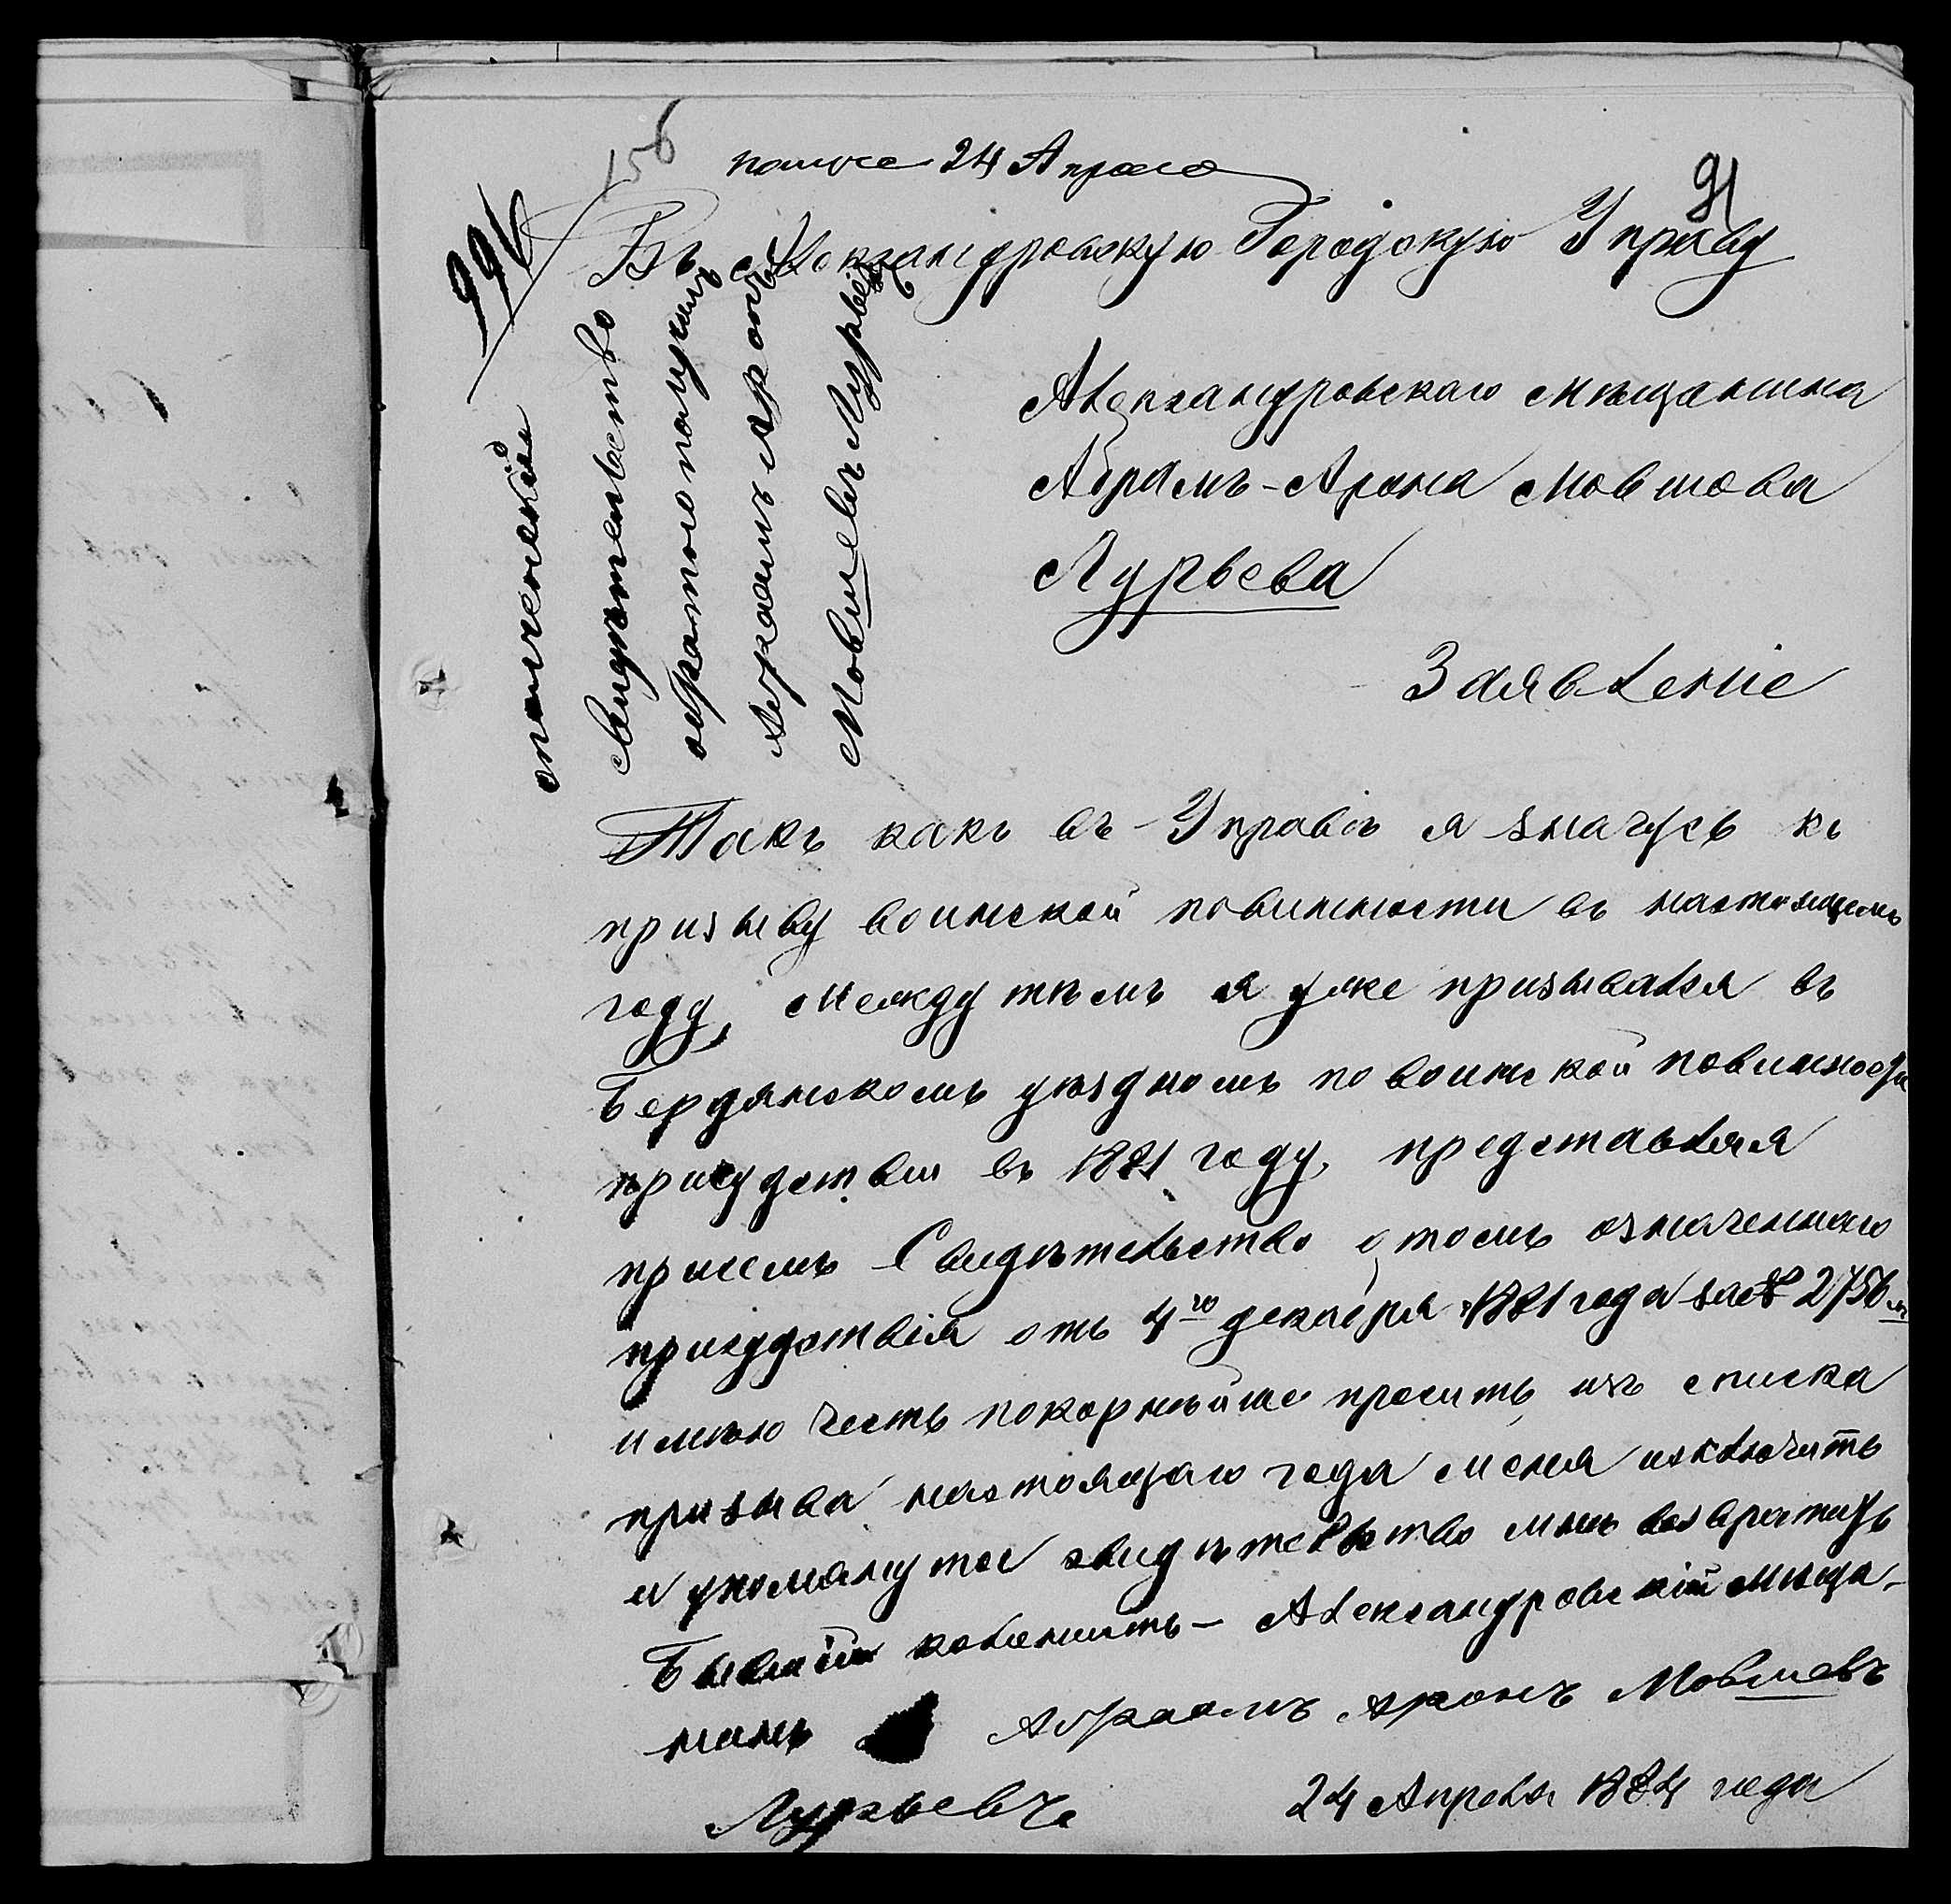 156
получе 24 Апреля
91
996
Въ Александровскую Городскую Управу
Александровскаго мѣщанина
Абрамъ-Арона Мовшова
Лурьева
Заявленіе
свидѣтельство
обратно получилъ
Абраамъ Аронъ
Мовшевъ Лурьевъ
Такъ какъ въ Управѣ я значусь къ
призыву воинской повинности въ настоящемъ
году, между тѣмъ я уже призывался въ
Бердянскомъ уѣздномъ по воинской повинности
присудствіи въ 1881 году, представляя
присемъ Свидѣтельство о томъ означеннаго
присудствія отъ 4го декабря 1881 года за № 2756
имѣю честь покорнѣйше просить, изъ списка
призыва настоящаго года меня изключить
и упомянутое свидѣтельство мнѣ возвратить
Александровскій мѣща-
нинъ Абраамъ Аронъ Мовшевъ
Лурьевъ 24 Апреля 1884 года